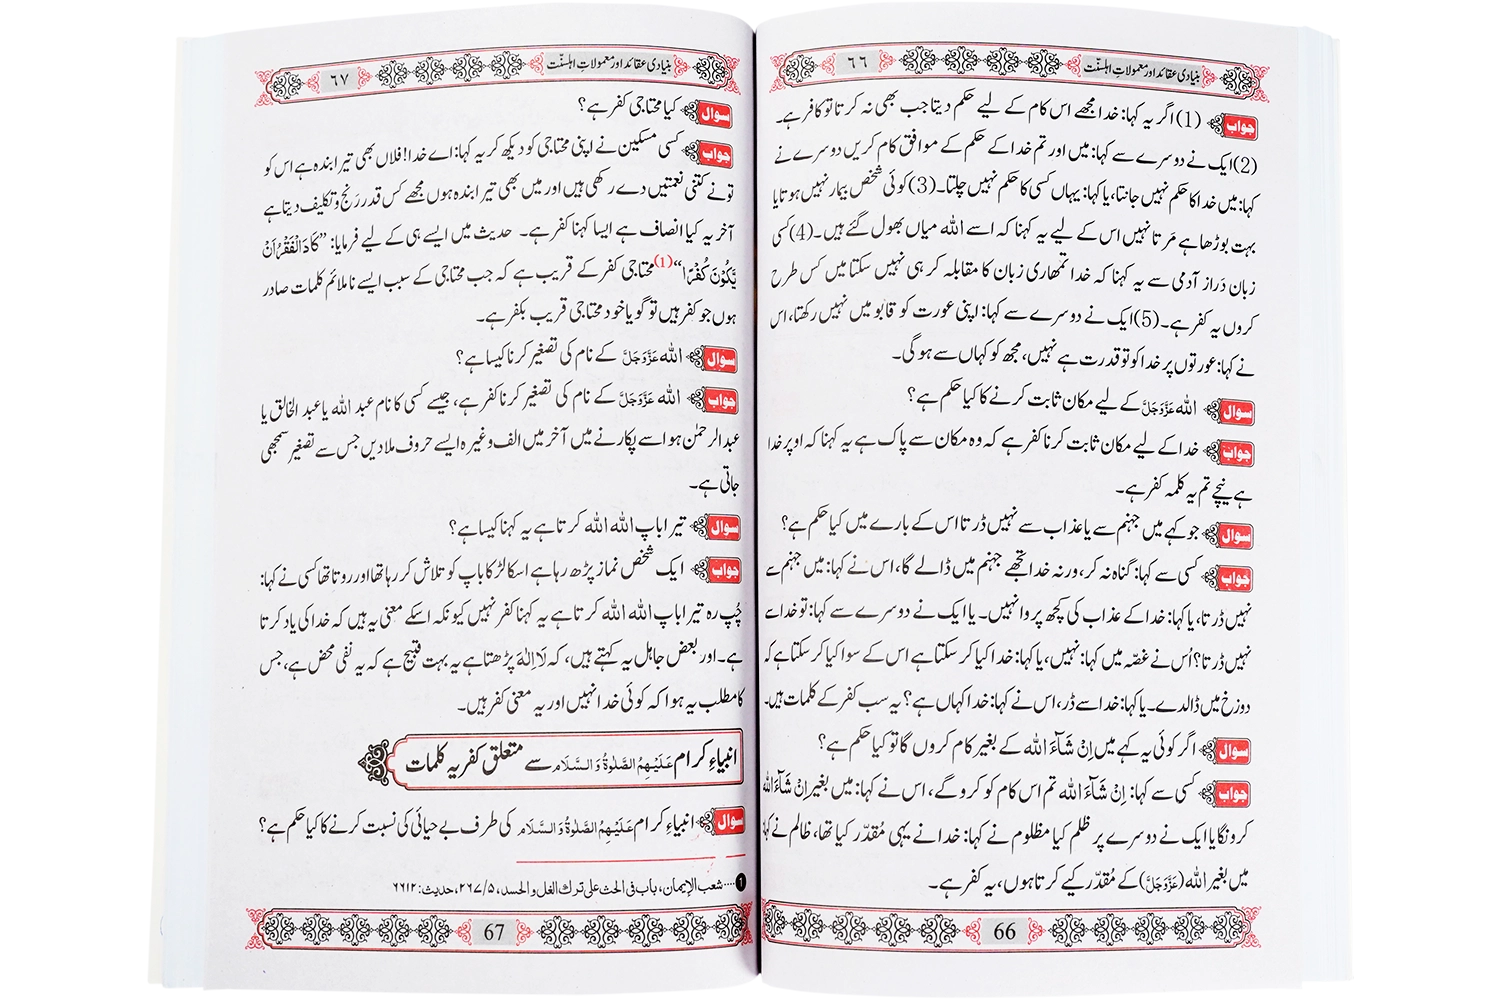 بنیادی عقائد اور معمولاتِ اہلسنّت
٦٦
جواب (1) اگر یہ کہا: خدا مجھے اس کام کے لیے حکم دیتا جب بھی نہ کرتا تو کافر ہے۔
(2) ایک نے دوسرے سے کہا: میں اور تم خدا کے حکم کے موافق کام کریں دوسرے نے
کہا: میں خدا کا حکم نہیں جانتا، یا کہا: یہاں کسی کا حکم نہیں چلتا۔ (3) کوئی شخص بیمار نہیں ہوتا یا
بہت بوڑھا ہے مَرتا نہیں اس کے لیے یہ کہنا کہ اسے اللہ میاں بھول گئے ہیں۔ (4) کسی
زبان دَراز آدمی سے یہ کہنا کہ خدا تمھاری زبان کا مقابلہ کر ہی نہیں سکتا میں کس طرح
کروں یہ کفر ہے۔ (5) ایک نے دوسرے سے کہا: اپنی عورت کو قابو میں نہیں رکھتا، اس
نے کہا: عورتوں پر خدا کو تو قدرت ہے نہیں، مجھ کو کہاں سے ہوگی۔
سوال اللہ عَزَّوَجَلَّ کے لیے مکان ثابت کرنے کا کیا حکم ہے؟
جواب خدا کے لیے مکان ثابت کرنا کفر ہے کہ وہ مکان سے پاک ہے یہ کہنا کہ اوپر خدا
ہے نیچے تم یہ کلمہ کفر ہے۔
سوال جو کہے میں جہنم سے یا عذاب سے نہیں ڈرتا اس کے بارے میں کیا حکم ہے؟
جواب کسی سے کہا: گناہ نہ کر، ورنہ خدا تجھے جہنم میں ڈالے گا، اس نے کہا: میں جہنم سے
نہیں ڈرتا، یا کہا: خدا کے عذاب کی کچھ پروا نہیں۔ یا ایک نے دوسرے سے کہا: تو خدا سے
نہیں ڈرتا؟ اُس نے غصّہ میں کہا: نہیں، یا کہا: خدا کیا کر سکتا ہے اس کے سوا کیا کر سکتا ہے کہ
دوزخ میں ڈالدے۔ یا کہا: خدا سے ڈر، اس نے کہا: خدا کہاں ہے؟ یہ سب کفر کے کلمات ہیں۔
سوال اگر کوئی یہ کہے میں اِنْ شَآءَ اللہ کے بغیر کام کروں گا تو کیا حکم ہے؟
جواب کسی سے کہا: اِنْ شَآءَ اللہ تم اس کام کو کرو گے، اس نے کہا: میں بغیر اِنْ شَآءَ اللہ
کرونگا یا ایک نے دوسرے پر ظلم کیا مظلوم نے کہا: خدا نے یہی مُقدّر کیا تھا، ظالم نے کہا:
میں بغیر اللہ (عَزَّوَجَلَّ) کے مُقدّر کیے کرتا ہوں، یہ کفر ہے۔
66
بنیادی عقائد اور معمولاتِ اہلسنّت
٦٧
سوال کیا محتاجی کفر ہے؟
جواب کسی مسکین نے اپنی محتاجی کو دیکھ کر یہ کہا: اے خدا! فلاں بھی تیرا بندہ ہے اس کو
تو نے کتنی نعمتیں دے رکھی ہیں اور میں بھی تیرا بندہ ہوں مجھے کس قدر رَنج و تکلیف دیتا ہے
آخر یہ کیا انصاف ہے ایسا کہنا کفر ہے۔ حدیث میں ایسے ہی کے لیے فرمایا: ”کَادَ الْفَقْرُ اَنْ
یَّکُوْنَ کُفْرًا“ (1) محتاجی کفر کے قریب ہے کہ جب محتاجی کے سبب ایسے ناملائم کلمات صادر
ہوں جو کفر ہیں تو گویا خود محتاجی قریب بکفر ہے۔
سوال اللہ عَزَّوَجَلَّ کے نام کی تصغیر کرنا کیسا ہے؟
جواب اللہ عَزَّوَجَلَّ کے نام کی تصغیر کرنا کفر ہے، جیسے کسی کا نام عبد اللہ یا عبد الخالق یا
عبدالرحمٰن ہو اسے پکارنے میں آخر میں الف وغیرہ ایسے حروف ملا دیں جس سے تصغیر سمجھی
جاتی ہے۔
سوال تیرا باپ اللہ اللہ کرتا ہے یہ کہنا کیسا ہے؟
جواب ایک شخص نماز پڑھ رہا ہے اسکا لڑکا باپ کو تلاش کر رہا تھا اور روتا تھا کسی نے کہا:
چُپ رہ تیرا باپ اللہ اللہ کرتا ہے یہ کہنا کفر نہیں کیونکہ اسکے معنی یہ ہیں کہ خدا کی یاد کرتا
ہے۔ اور بعض جاہل یہ کہتے ہیں، کہ لَا اِلٰہَ پڑھتا ہے یہ بہت قبیح ہے کہ یہ نفی محض ہے، جس
کا مطلب یہ ہوا کہ کوئی خدا نہیں اور یہ معنی کفر ہیں۔
انبیاءِ کرام عَلَیْہِمُ الصَّلٰوۃُ وَالسَّلَام سے متعلق کفریہ کلمات
سوال انبیاءِ کرام عَلَیْہِمُ الصَّلٰوۃُ وَالسَّلَام کی طرف بے حیائی کی نسبت کرنے کا کیا حکم ہے؟
1 .... شعب الإیمان، باب فی الحث علی ترک الغل والحسد، ٥/٢٦٧، حدیث: ٦٦١٢
67